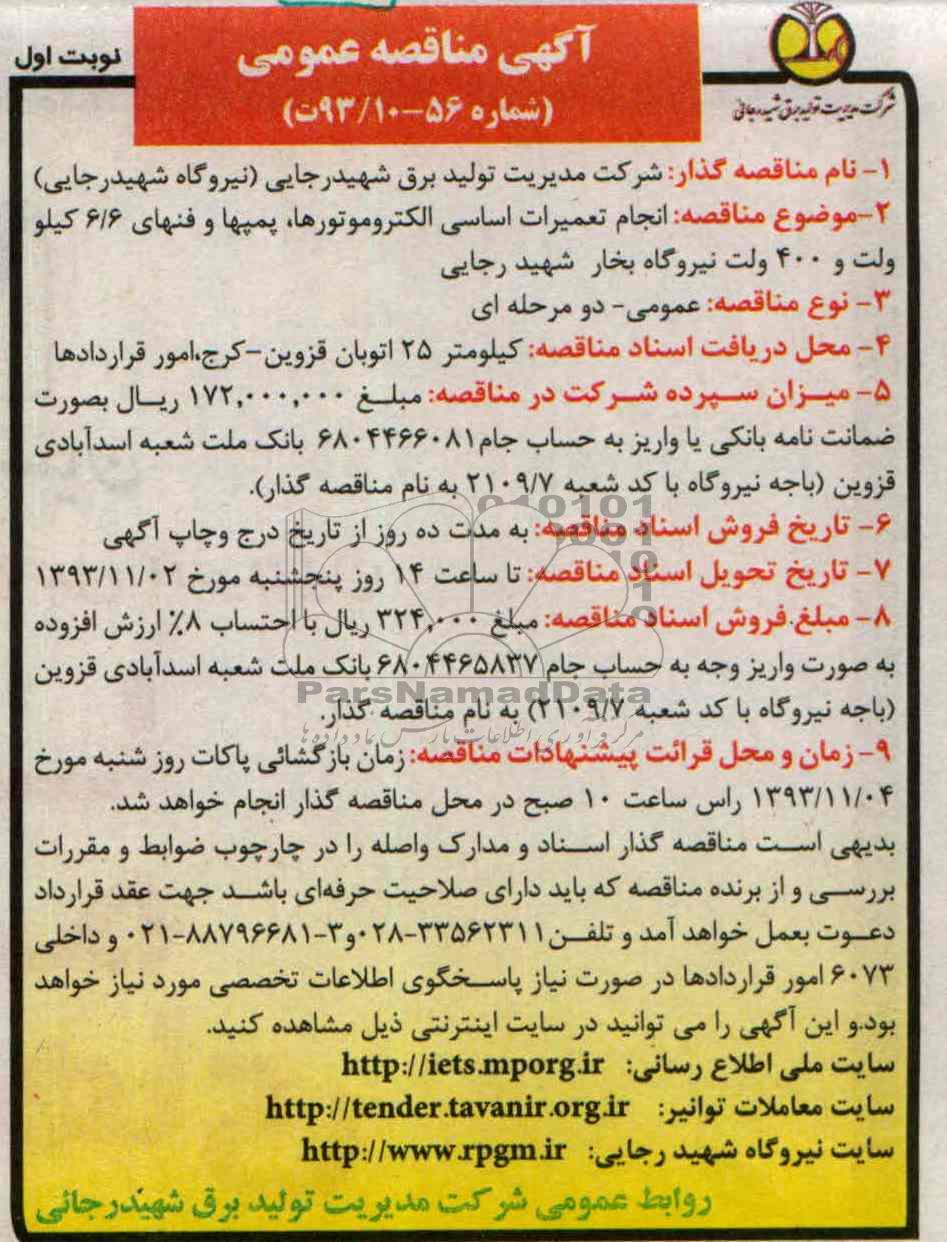 آگهی مناقصه عمومی
(شماره ۵۶-۹۳/۱۰ت)
نوبت اول
شرکت مدیریت تولید برق شهید رجائی
۱- نام مناقصه گذار: شرکت مدیریت تولید برق شهیدرجایی (نیروگاه شهیدرجایی)
۲-موضوع مناقصه: انجام تعمیرات اساسی الکتروموتورها، پمپها و فنهای ۶/۶ کیلو
ولت و ۴۰۰ ولت نیروگاه بخار شهید رجایی
۳- نوع مناقصه: عمومی- دو مرحله ای
۴- محل دریافت اسناد مناقصه: کیلومتر ۲۵ اتوبان قزوین-کرج،امور قراردادها
۵- میزان سپرده شرکت در مناقصه: مبلغ ۱۷۲,۰۰۰,۰۰۰ ریال بصورت
ضمانت نامه بانکی یا واریز به حساب جام۶۸۰۴۴۶۶۰۸۱ بانک ملت شعبه اسدآبادی
قزوین (باجه نیروگاه با کد شعبه ۲۱۰۹/۷ به نام مناقصه گذار).
۶- تاریخ فروش اسناد مناقصه: به مدت ده روز از تاریخ درج وچاپ آگهی
۷- تاریخ تحویل اسناد مناقصه: تا ساعت ۱۴ روز پنجشنبه مورخ ۱۳۹۳/۱۱/۰۲
۸- مبلغ فروش اسناد مناقصه: مبلغ ۳۲۴,۰۰۰ ریال با احتساب ۸٪ ارزش افزوده
به صورت واریز وجه به حساب جام ۶۸۰۴۴۶۵۸۳۷ بانک ملت شعبه اسدآبادی قزوین
ParsNamadData
(باجه نیروگاه با کد شعبه ۲۱۰۹/۷) به نام مناقصه گذار.
۹- زمان و محل قرائت پیشنهادات مناقصه: زمان بازگشائی پاکات روز شنبه مورخ
۱۳۹۳/۱۱/۰۴ راس ساعت ۱۰ صبح در محل مناقصه گذار انجام خواهد شد.
بدیهی است مناقصه گذار اسناد و مدارک واصله را در چارچوب ضوابط و مقررات
بررسی و از برنده مناقصه که باید دارای صلاحیت حرفه‌ای باشد جهت عقد قرارداد
دعوت بعمل خواهد آمد و تلفن ۳۳۵۶۲۳۱۱-۰۲۸و۳-۸۸۷۹۶۶۸۱-۰۲۱ و داخلی
۶۰۷۳ امور قراردادها در صورت نیاز پاسخگوی اطلاعات تخصصی مورد نیاز خواهد
بود.و این آگهی را می توانید در سایت اینترنتی ذیل مشاهده کنید.
سایت ملی اطلاع رسانی: http://iets.mporg.ir
سایت معاملات توانیر: http://tender.tavanir.org.ir
سایت نیروگاه شهید رجایی: http://www.rpgm.ir
روابط عمومی شرکت مدیریت تولید برق شهیدرجائی